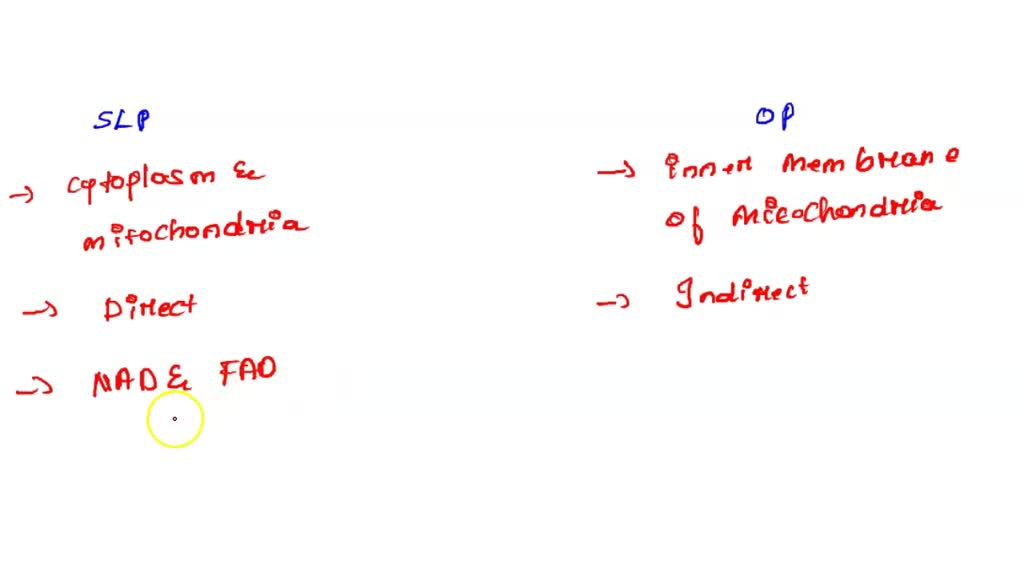 SLP
OP
→ Cytoplasm &
mitochondria
→ inner membrane
of mitochondria
→ Direct
→ Indirect
→ NAD & FAD